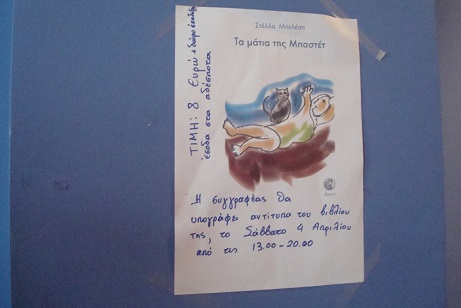 Στέλλα Μπελέση
Τα μάτια της Μπαστέτ
ΤΙΜΗ: 8 Ευρώ + δώρο
έσοδα στα αδέσποτα
Η συγγραφέας θα
υπογράφει αντίτυπα του βιβλίου
της, το Σάββατο 4 Απριλίου
από τις 13.00-20.00